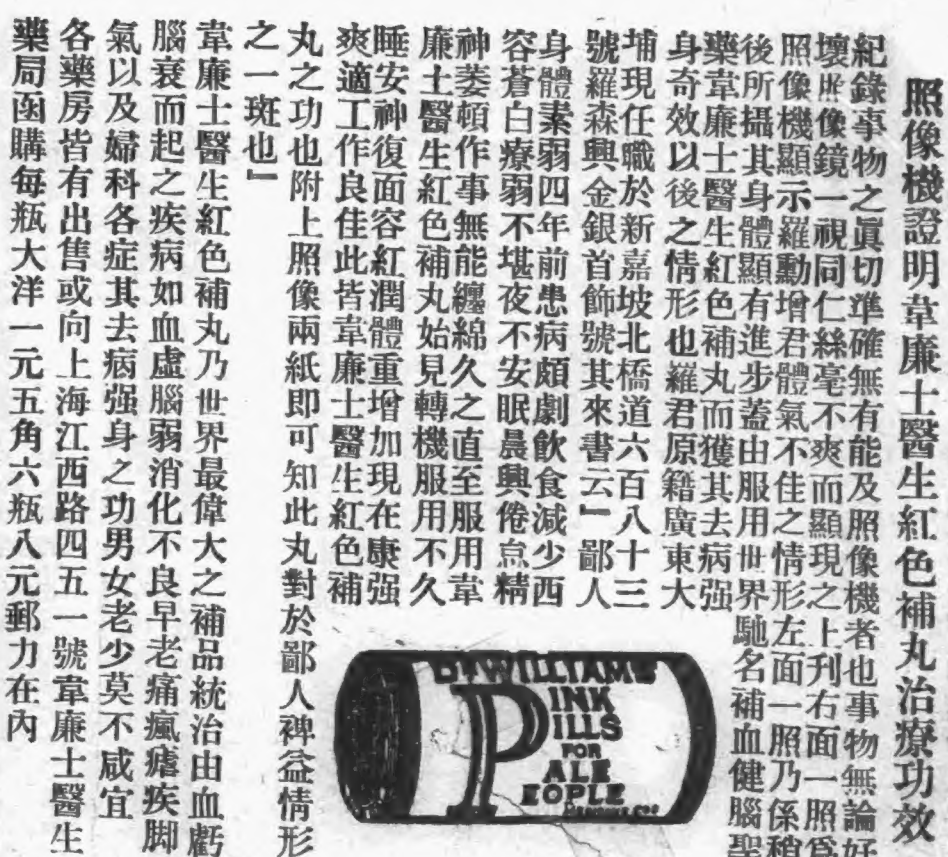 照像機證明韋廉士醫生紅色補丸治療功效
紀錄事物之眞切準確無有能及照像機者也事物無論好
壞照像鏡一視同仁絲毫不爽而顯現之上刋右面一照爲
照像機顯示羅勳增君體氣不佳之情形左面一照乃係稍
後所攝其身體顯有進步蓋由服用世界馳名補血健腦聖
藥韋廉士醫生紅色補丸而獲其去病强
身奇效以後之情形也羅君原籍廣東大
埔現任職於新嘉坡北橋道六百八十三
號羅森興金銀首飾號其來書云』鄙人
身體素弱四年前患病頗劇飲食減少西
容蒼白療弱不堪夜不安眠晨興倦怠精
神萎頓作事無能纏綿久之直至服用韋
廉士醫生紅色補丸始見轉機服用不久
睡安神復面容紅潤體重增加現在康强
爽適工作良佳此皆韋廉士醫生紅色補
丸之功也附上照像兩紙即可知此丸對於鄙人裨益情形
之一斑也』
韋廉士醫生紅色補丸乃世界最偉大之補品統治由血虧
腦衰而起之疾病如血虛腦弱消化不良早老痛瘋瘧疾脚
氣以及婦科各症其去病强身之功男女老少莫不咸宜
各藥房皆有出售或向上海江西路四五一號韋廉士醫生
藥局函購每瓶大洋一元五角六瓶八元郵力在內
DR WILLIAMS
PINK
PILLS
FOR
PALE
PEOPLE